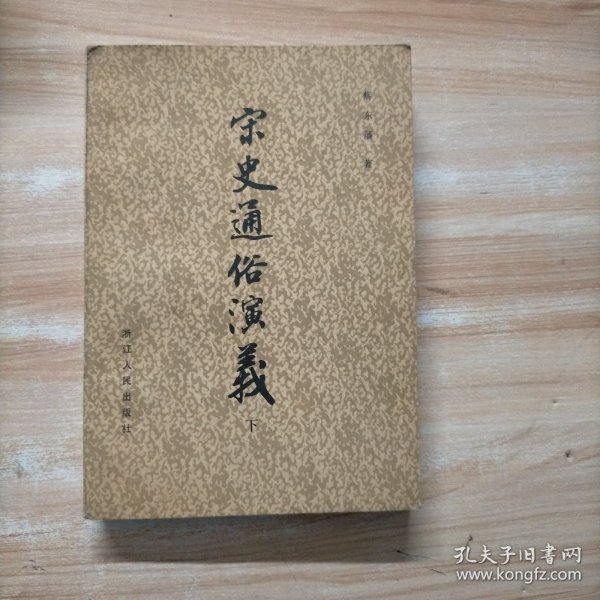 蔡东藩 著
宋史通俗演義
下
浙江人民出版社
孔夫子旧書网
www.kongfz.com